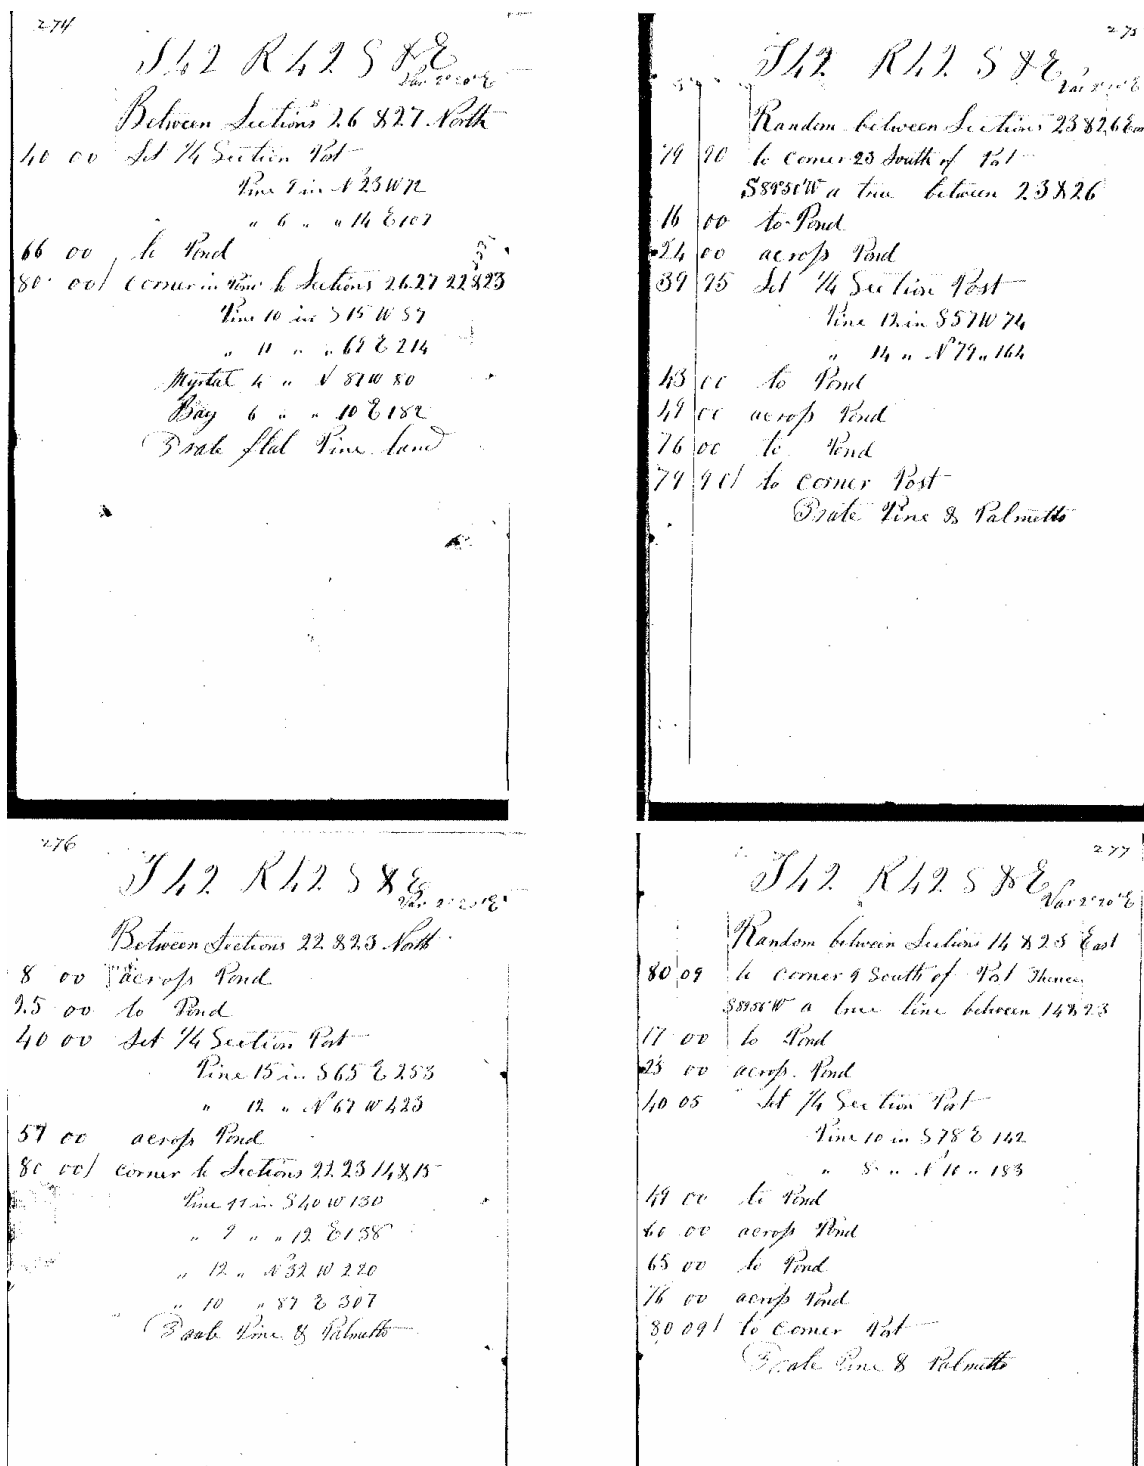 274
T42 R42 S & E
Var 2°20'E
Between Sections 26 & 27 North
40 00 Set 1/4 Section Post
Pine 9 in N 23 W 72
" 6 " " 14 E 107
66 00 to Pond
80 00 corner in Pond to Sections 26.27 22 & 23
Pine 10 in S 15 W 57
" 11 " " 69 E 214
Myrtal 4 " N 87 W 80
Bay 6 " " 10 E 182
3 rate flat Pine land
275
T42 R42 S & E
Var 2°20'E
Random between Sections 23 & 26 East
79 90 to corner 23 South of Post
S89°51'W a true between 23 & 26
16 00 to Pond
24 00 across Pond
39 95 Set 1/4 Section Post
Pine 12 in S 57 W 74
" 14 " N 79 " 164
43 00 to Pond
49 00 across Pond
76 00 to Pond
79 90 to corner Post
3 rate Pine & Palmetto
276
T42 R42 S & E
Var 2°20'E
Between Sections 22 & 23 North
8 00 across Pond
25 00 to Pond
40 00 Set 1/4 Section Post
Pine 15 in S 65 E 253
" 12 " N 67 W 423
57 00 across Pond
80 00 corner to Sections 22.23 14 & 15
Pine 11 in S 40 W 130
" 9 " " 12 E 138
" 12 " N 32 W 220
" 10 " 87 E 307
3 rate Pine & Palmetto
277
T42 R42 S & E
Var 2°20'E
Random between Sections 14 & 23 East
80 09 to corner 9 South of Post Thence
S89°56'W a true line between 14 & 23
17 00 to Pond
23 00 across Pond
40 05 Set 1/4 Section Post
Pine 10 in S 78 E 142
" 8 " N 10 " 183
49 00 to Pond
60 00 across Pond
65 00 to Pond
76 00 across Pond
80 09 to corner Post
3 rate Pine & Palmetto